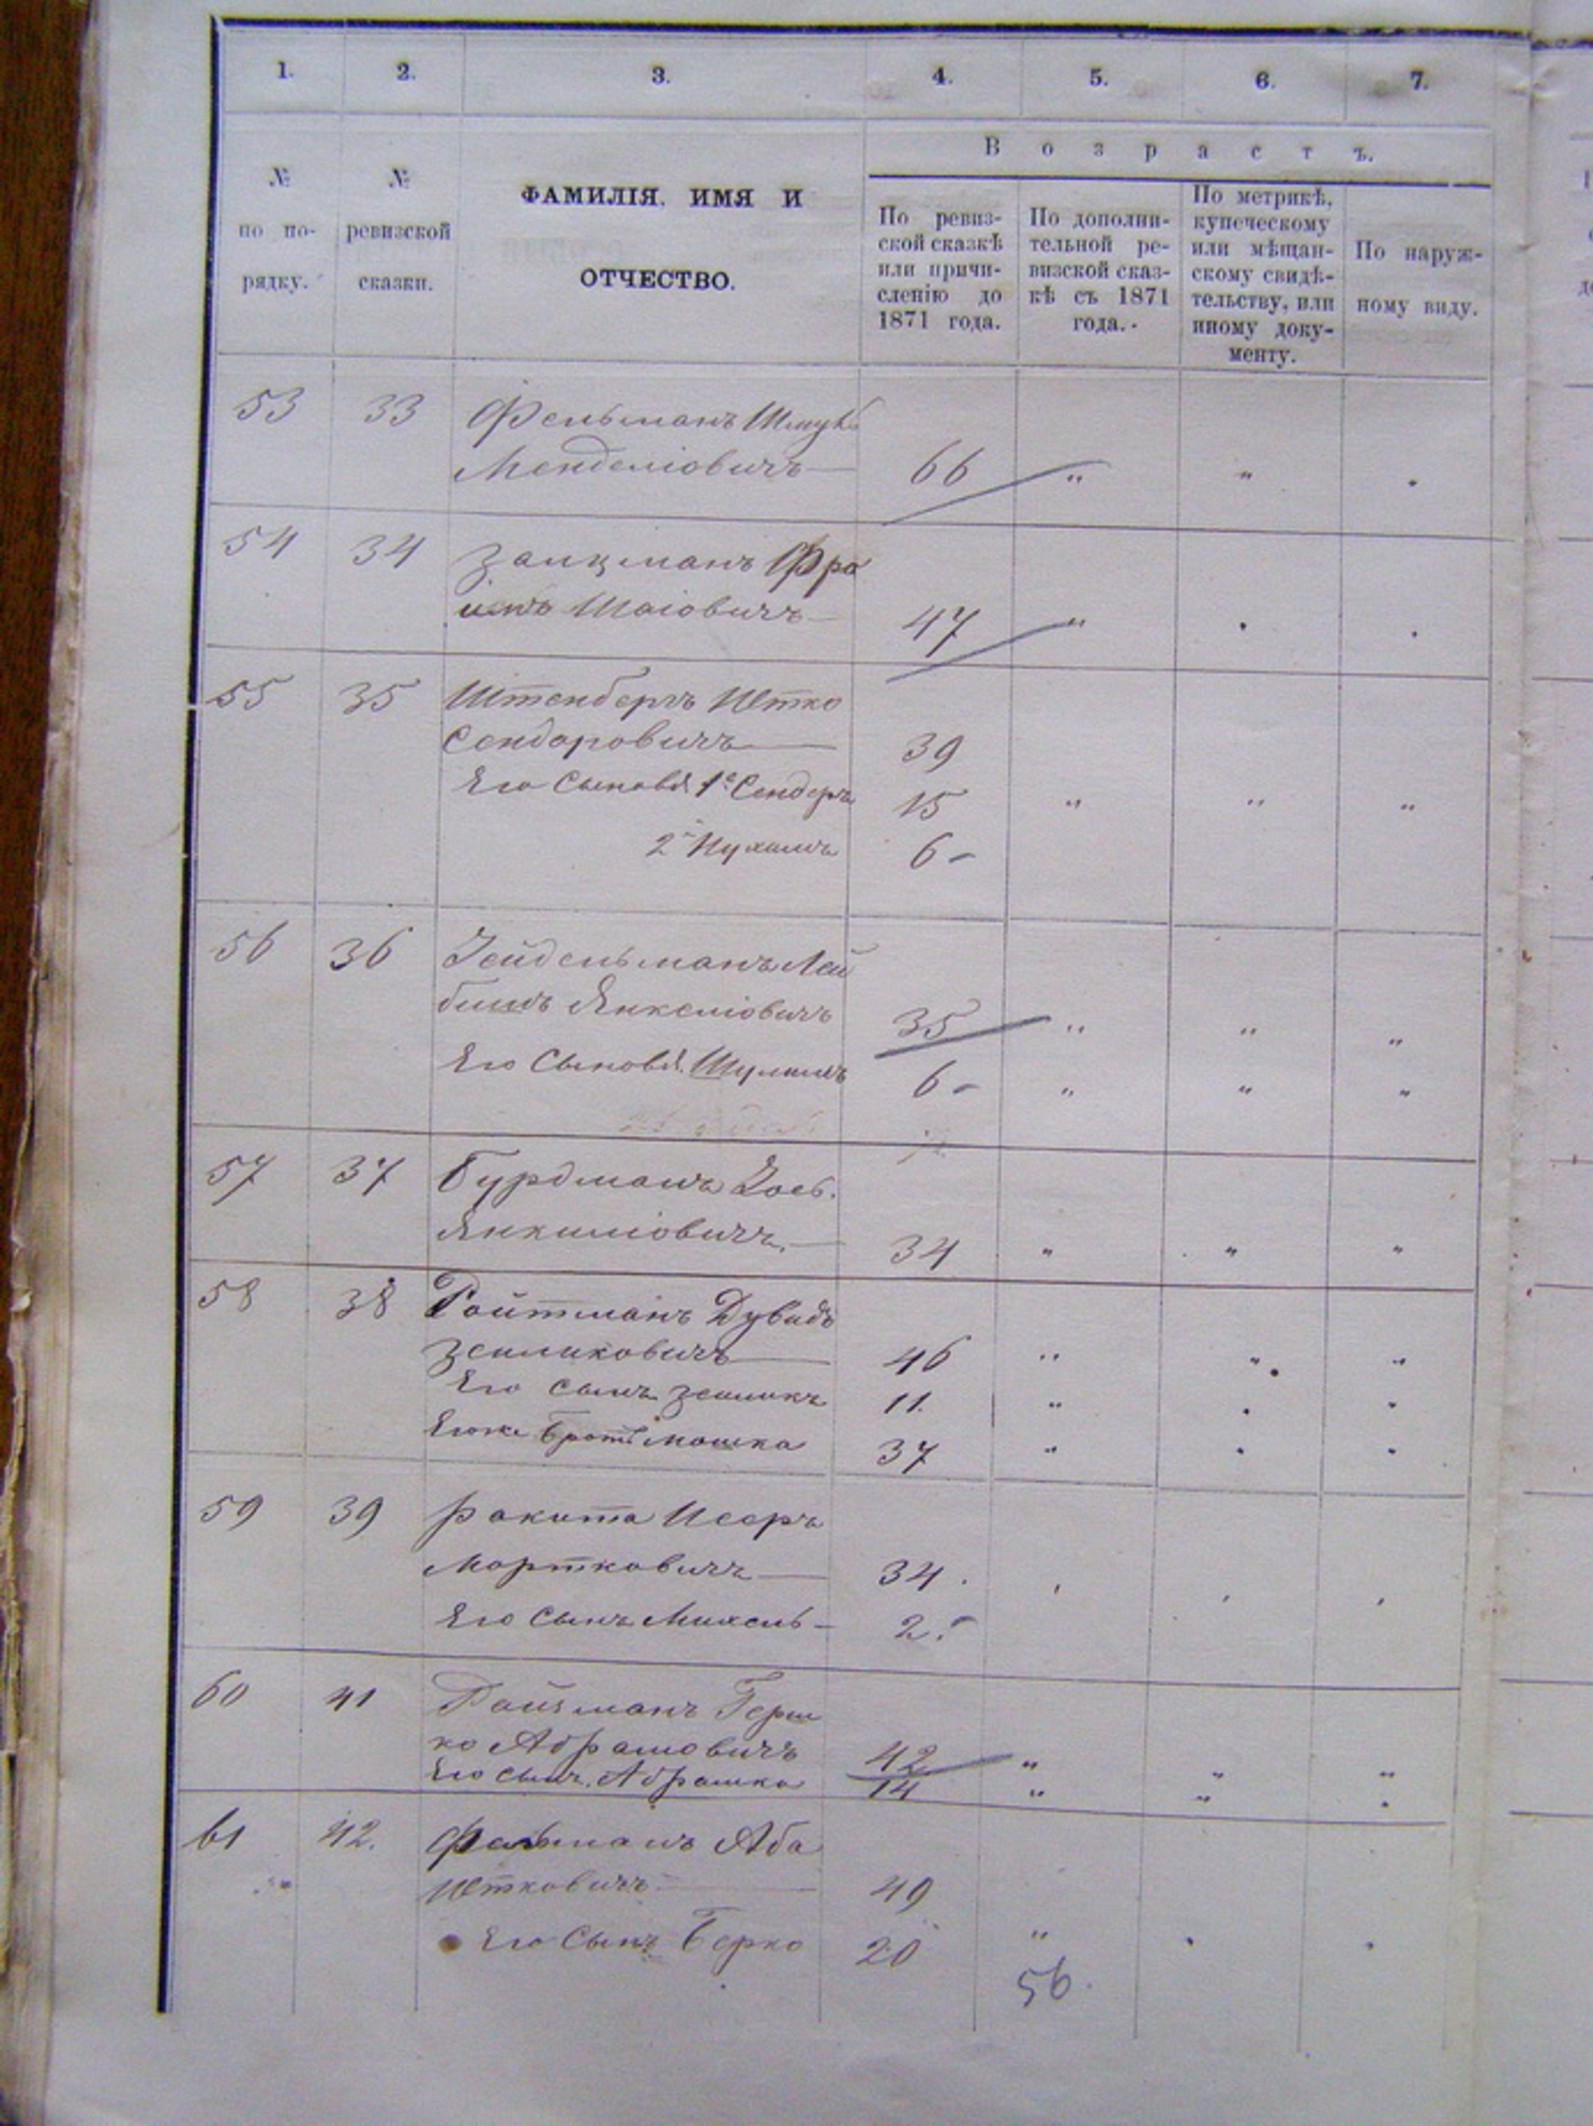 1. 2. 3. 4. 5. 6. 7.
№ по по-рядку.
№ ревизской сказки.
ФАМИЛІЯ, ИМЯ И
ОТЧЕСТВО.
Возрастъ.
По ревиз-
ской сказкѣ
или причи-
сленію до
1871 года.
По дополни-
тельной ре-
визской сказ-
кѣ съ 1871
года.
По метрикѣ,
купеческому
или мѣщан-
скому свидѣ-
тельству, или
иному доку-
менту.
По наруж-
ному виду.
53 33 Фельманъ Шмуль
Менделіовичъ — 66 " " "
54 34 Залцманъ Фро
имъ Шаіовичъ — 47 " " "
55 35 Штенберъ Иетко
Сендоровичъ — 39
Его Сыновья 1й Сендеръ 15 " " "
2й Нухимъ 6 –
56 36 Зейдельманъ Лей
бишъ Янкеліовичъ 35 " " "
Его Сыновья Шулимъ 6 – " " "
57 37 Бурдманъ Зось
Янкиліовичъ — 34 " " "
58 38 Ройтманъ Дувидъ
Зейликовичъ — 46 " " "
Его сынъ Зейликъ 11. " " "
Егоже Братъ Мошка 37 " " "
59 39 Ракита Исеръ
Мортковичъ — 34. " " "
Его Сынъ Михель – 2.
60 41 Гойхманъ Герш
ко Абрамовичъ 42 " " "
Его сынъ Абрашка 14 " " "
61 42. Фельманъ Аба
Иетковичъ — 49
Его Сынъ Берко 20 " " "
56.